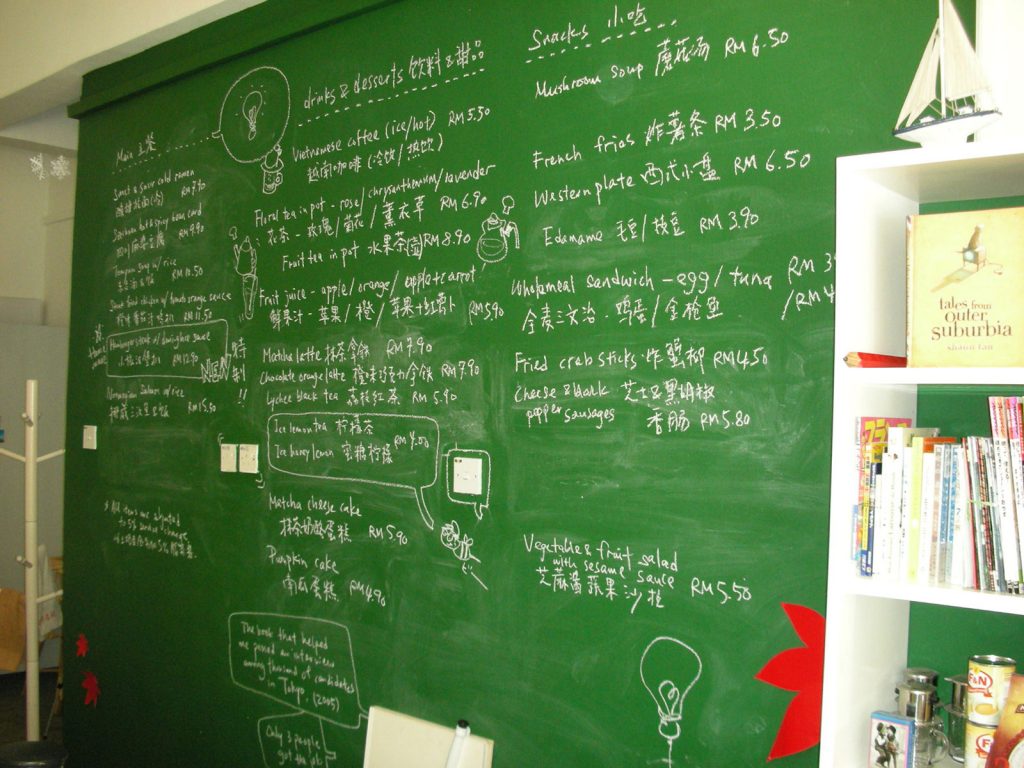 Main 主菜
Sweet & sour cold ramen
RM 9.90
Szechuan hot & spicy bean curd
RM 9.90
w/ rice
RM 10.50
orange sauce
RM 11.50
RM 12.90
NEW 特制!!
Norwegian Salmon w/ rice
RM 15.90
* All items are subjected
to 5% service charge
drinks & desserts 饮料&甜品
Vietnamese coffee (ice/hot) RM 5.50
越南咖啡 (冷饮/热饮)
Floral tea in pot - rose/chrysanthemum/lavender
花茶 - 玫瑰/菊花/薰衣草 RM 6.90
Fruit tea in pot 水果茶 RM 8.90
Fruit juice - apple/orange/apple+carrot
鲜果汁 - 苹果/橙/苹果+红萝卜 RM 5.90
Matcha latte 抹茶拿铁 RM 7.90
Chocolate orange latte 橙味巧克力拿铁 RM 7.90
Lychee black tea 荔枝红茶 RM 5.90
Ice lemon tea 柠檬茶
Ice honey lemon 蜜糖柠檬 RM 4.00
Matcha cheese cake
抹茶奶酪蛋糕 RM 5.90
Pumpkin cake
南瓜蛋糕 RM 4.90
The book that helped
me passed an interview
among thousand of candidates
in Tokyo. (2005)
Only 3 people
got the job
Snacks 小吃
Mushroom soup 蘑菇汤 RM 6.50
French fries 炸薯条 RM 3.50
Western plate 西式小盘 RM 6.50
Edamame 毛豆/枝豆 RM 3.90
Wholemeal sandwich - egg/tuna RM 3
全麦三文治 - 鸡蛋/金枪鱼 /RM 4
Fried crab sticks 炸蟹柳 RM 4.50
Cheese & black 芝士&黑胡椒
pepper sausages 香肠 RM 5.80
Vegetable & fruit salad
with sesame sauce
芝麻酱蔬果沙拉 RM 5.50
tales from
outer
suburbia
shaun tan
F&N
F&N